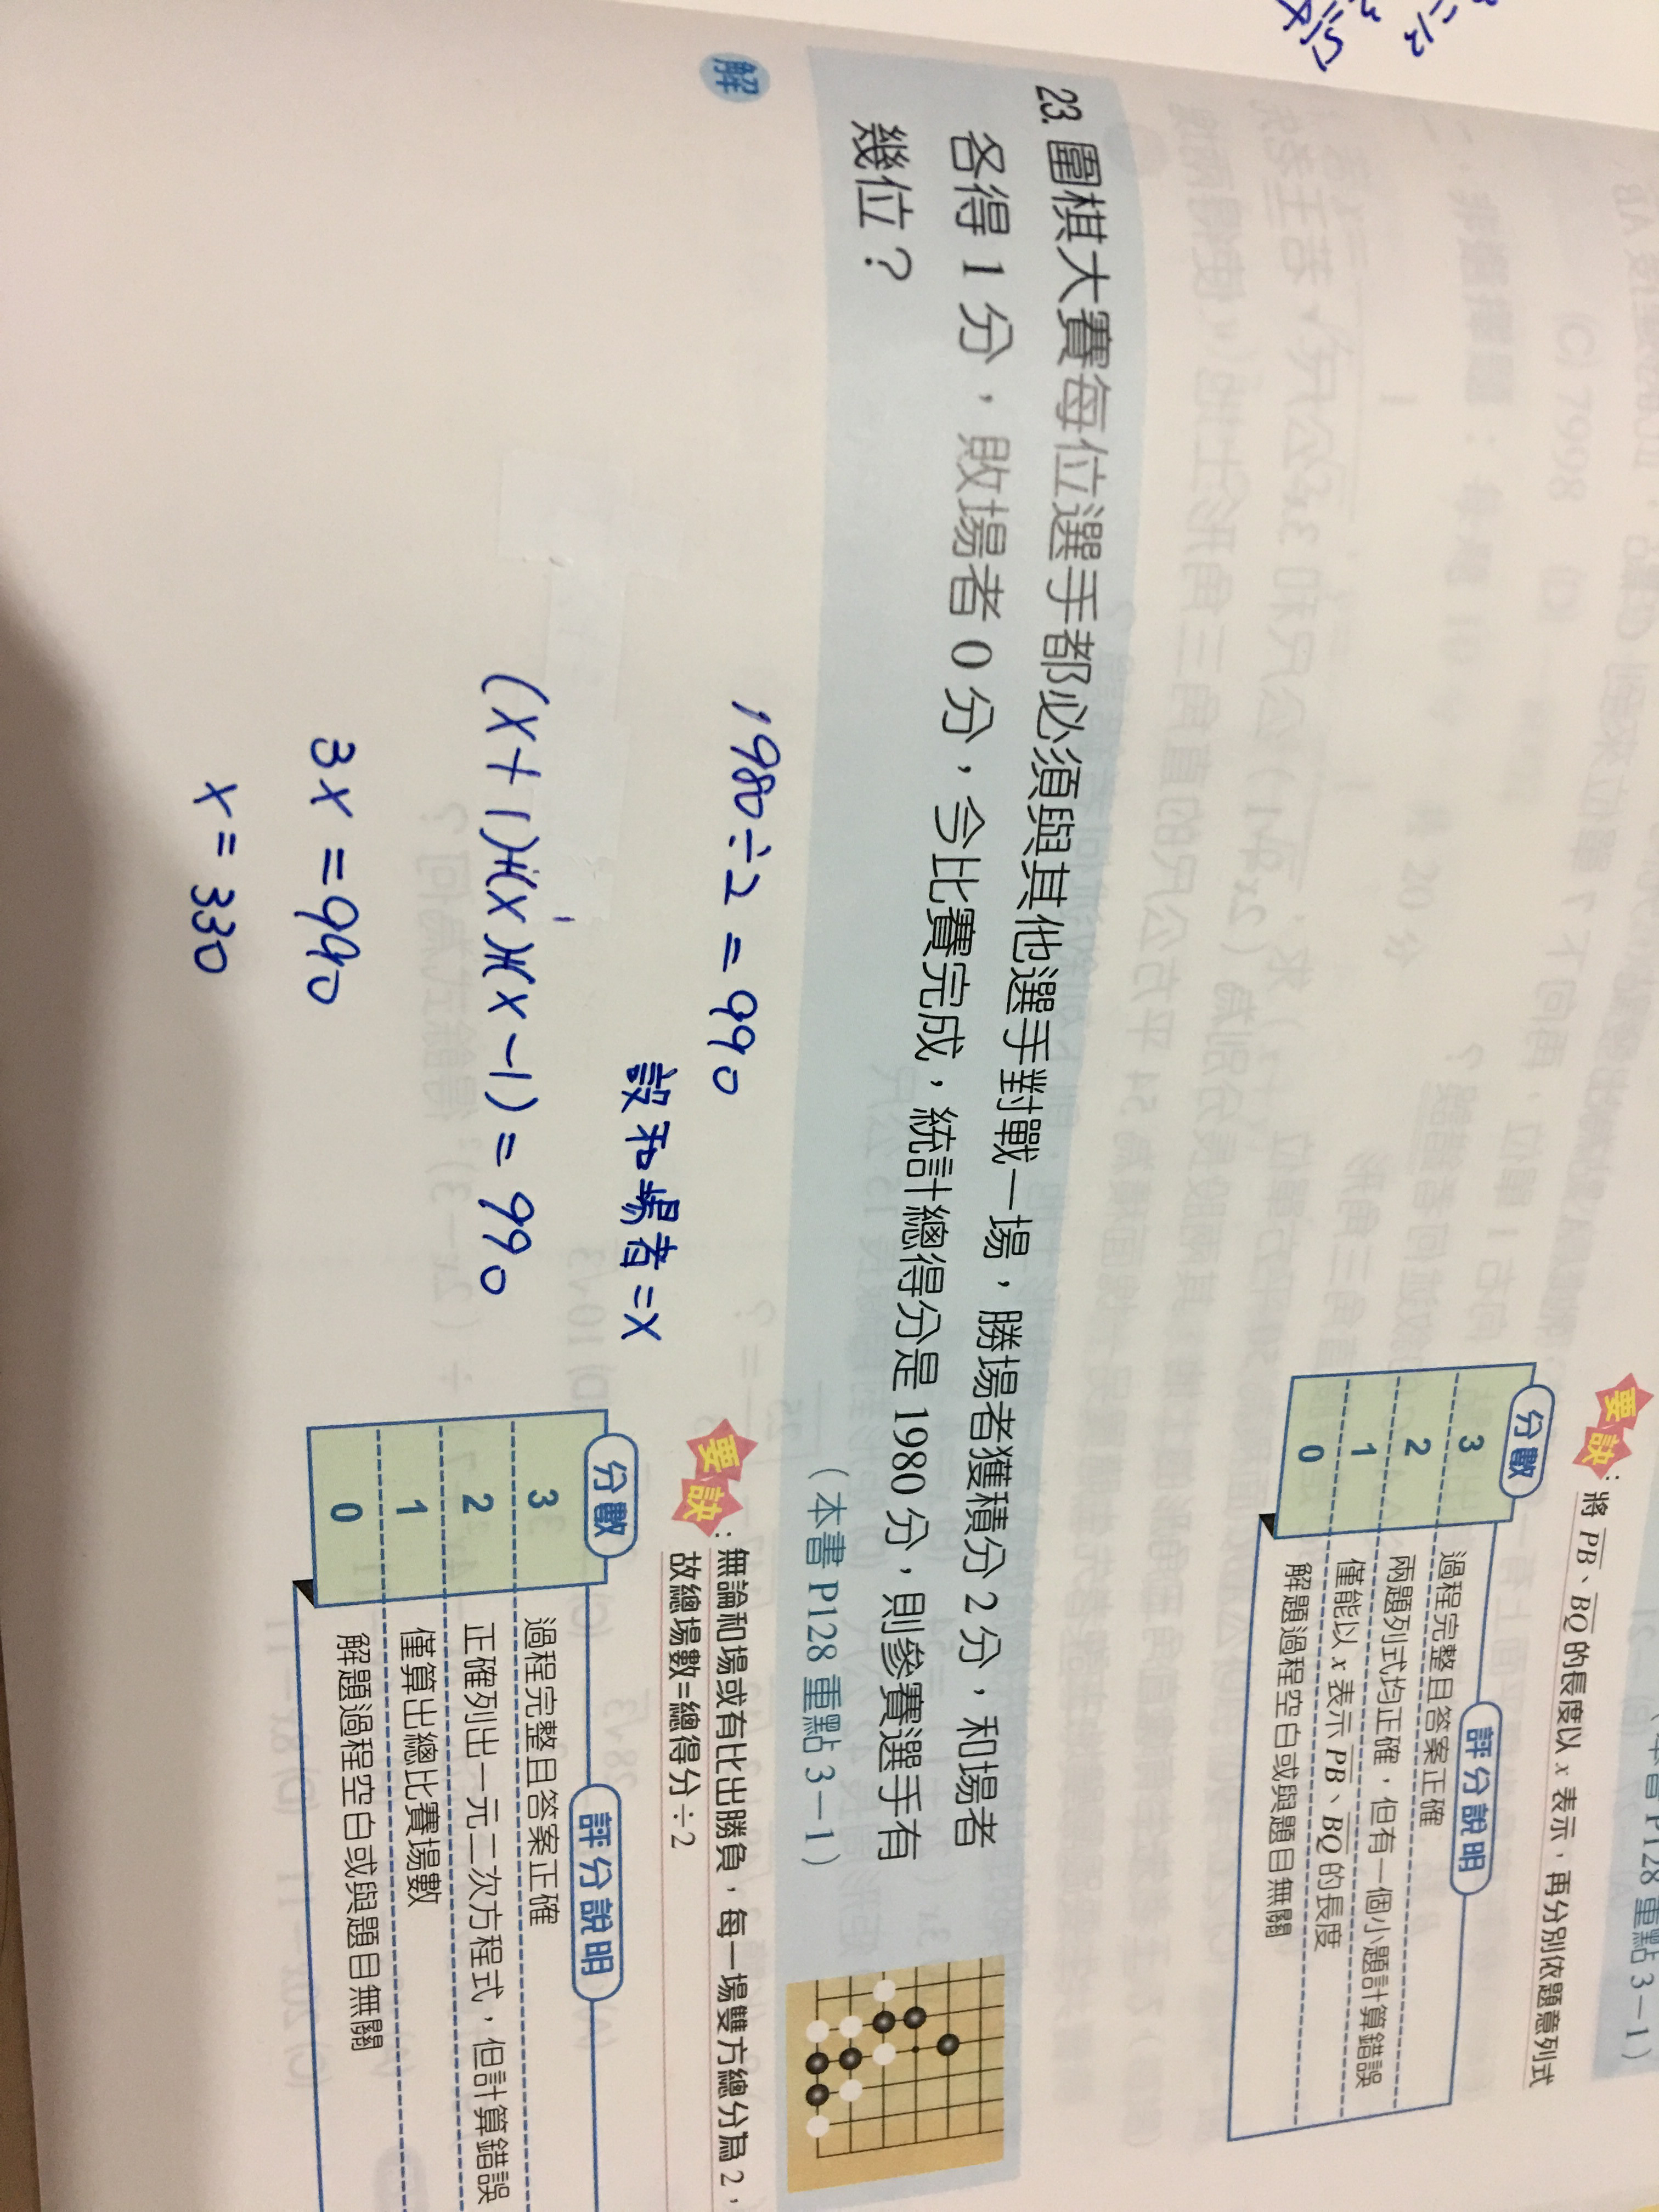 (本書 P128 重點 3－1)
要訣：將 PB、BQ 的長度以 x 表示，再分別依題意列式
分數 評分說明
3 過程完整且答案正確
2 兩題列式均正確，但有一個小題計算錯誤
1 僅能以 x 表示 PB、BQ 的長度
0 解題過程空白或與題目無關
23. 圍棋大賽每位選手都必須與其他選手對戰一場，勝場者獲積分 2 分，和場者
各得 1 分，敗場者 0 分，今比賽完成，統計總得分是 1980 分，則參賽選手有
幾位？
(本書 P128 重點 3－1)
解
1980÷2=990
設和場者=x
(x+1)+(x)+(x-1)=990
3x=990
x=330
要訣：無論和場或有比出勝負，每一場雙方總分為 2，
故總場數=總得分÷2
分數 評分說明
3 過程完整且答案正確
2 正確列出一元二次方程式，但計算錯誤
1 僅算出總比賽場數
0 解題過程空白或與題目無關